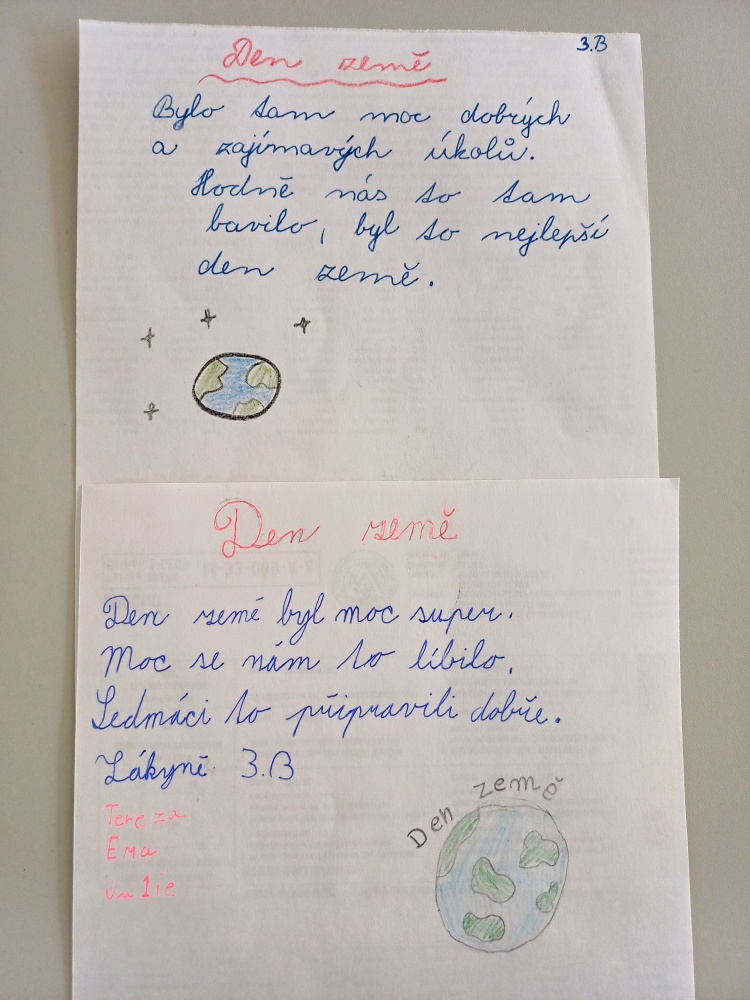 Den země
3.B
Bylo tam moc dobrých
a zajímavých úkolů.
Hodně nás to tam
bavilo, byl to nejlepší
den země.
Den země
Den země byl moc super.
Moc se nám to líbilo.
Sedmáci to připravili dobře.
Žákyně 3.B
Tereza
Ema
Den země